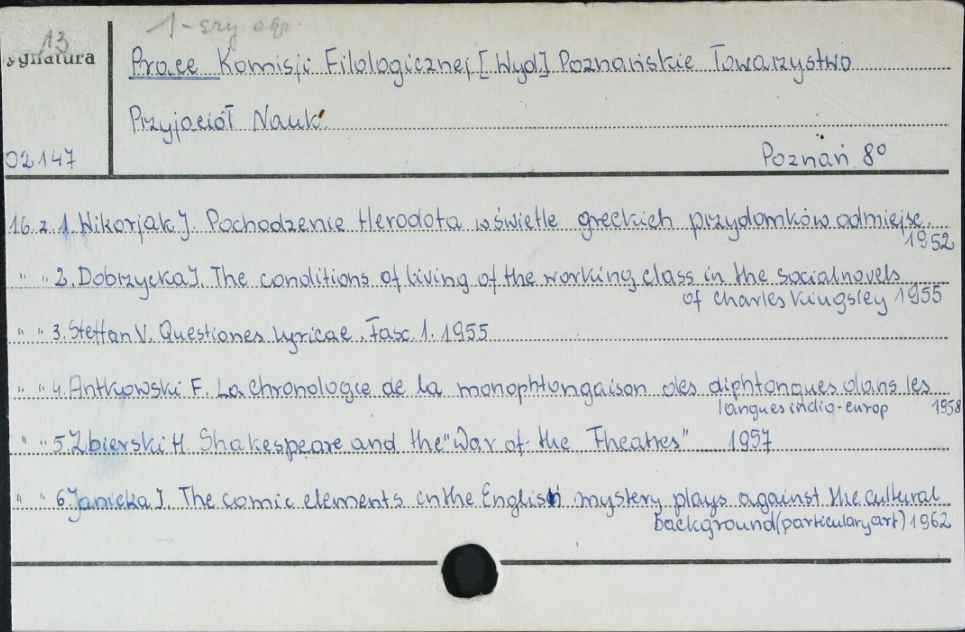 1-szy egz.
13
Sygnatura
Prace Komisji Filologicznej [Wyd] Poznańskie Towarzystwo
Przyjaciół Nauk
02147
Poznań 8°
16. z. 1. Wikarjak J. Pochodzenie Herodota w świetle greckich przydomków odmiejsc.
1952
" " 2. Dobrzycka J. The conditions of living of the working class in the social novels
of Charles Kingsley 1955
" " 3. Steffan V. Questiones lyricae. Fasc. 1. 1955
" " 4. Antkowski F. La chronologie de la monophtongaison des diphtongues dans les
langues indio-europ 1958
" " 5. Zbierski H. Shakespeare and the "War of the Theatres" 1957
" " 6. Janicka J. The comic elements in the English mystery plays against the cultural
background (particulary art) 1962